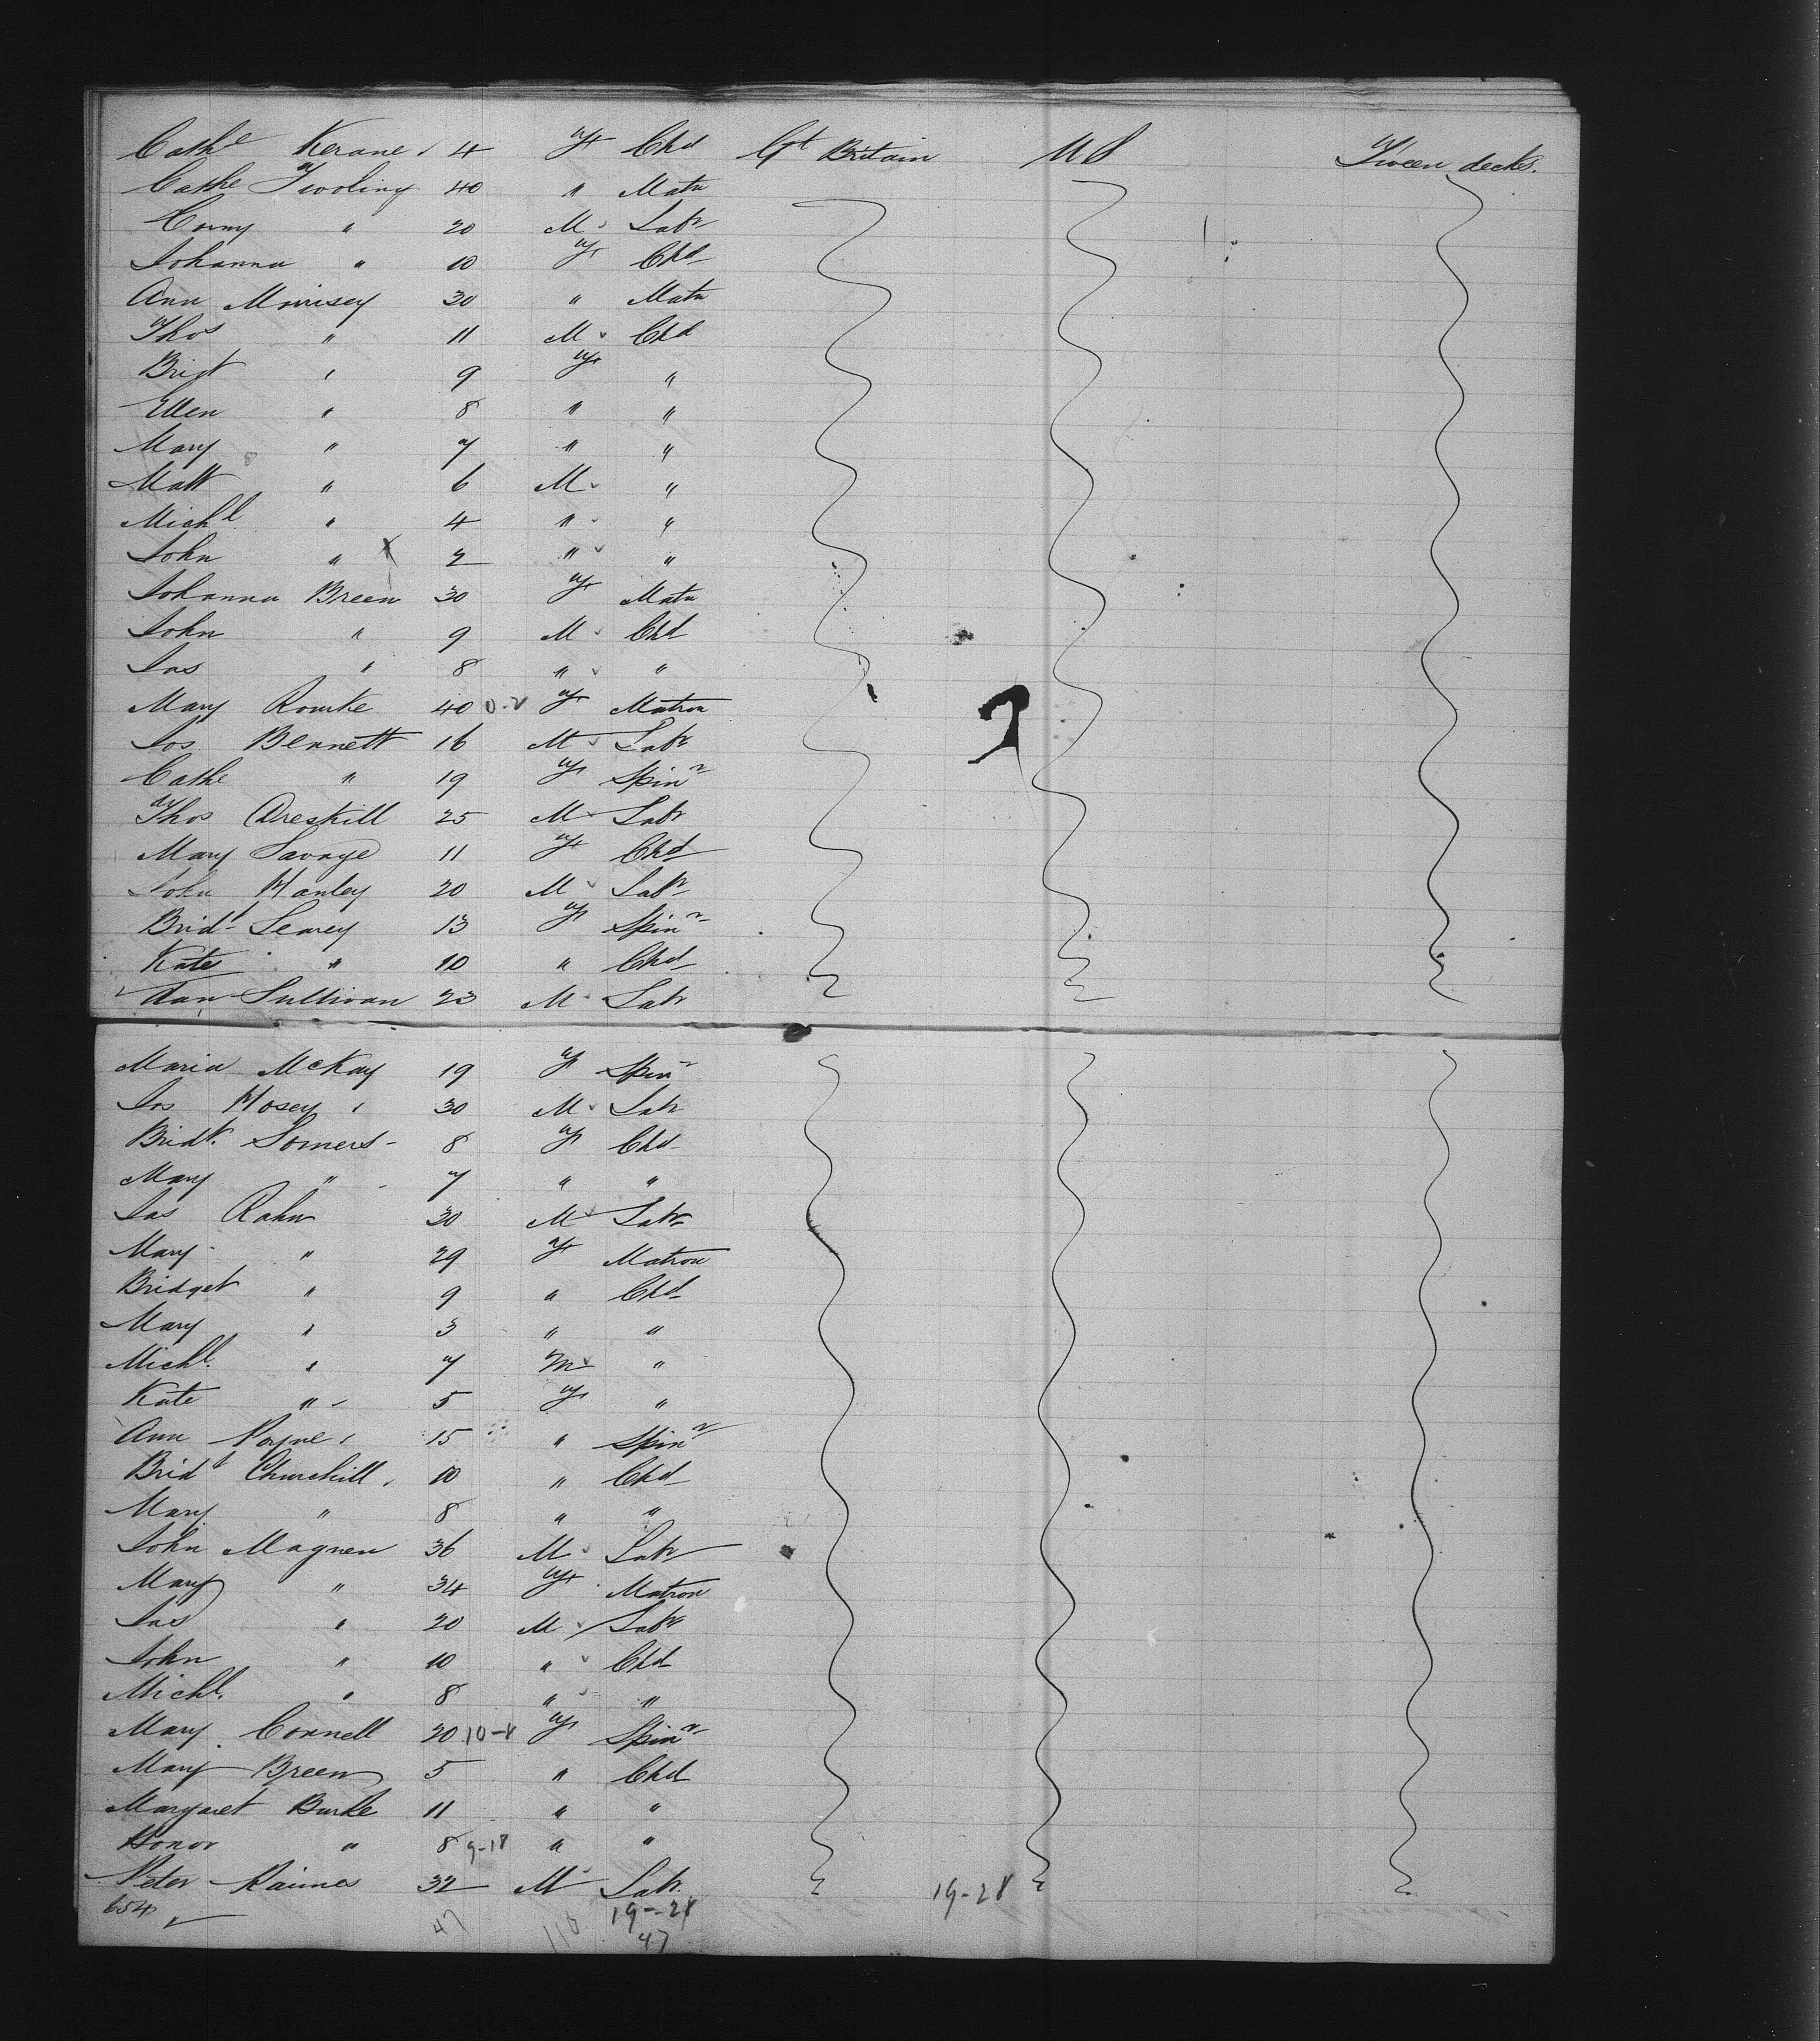 Cathe Kerane 4 f Chd Gt Britain U S Tween decks.
Cathe Twoliny 40 " Matn
Corny " 20 M Labr
Johanna " 10 f Chd
Ann Morrisey 30 " Matn
Thos " 11 M Chd
Brigt " 9 f "
Ellen " 8 " "
Mary " 7 " "
Matt " 6 M "
Michl " 4 " "
John " X 2 " "
Johanna Breen 30 f Matn
John " 9 M Chd
Jas " 8 " "
Mary Rourke 40 f Matron
Jos Bennett 16 M Labr
Cathe " 19 f Spinr
Thos Dreskill 25 M Labr
Mary Savage 11 f Chd
John Hanley 20 M Labr
Bridt Learey 13 f Spinr
Kate " 10 " Chd
Dan Sullivan 23 M Labr
Maria McKay 19 f Spinr
Jos Hosey 30 M Labr
Bridt. Somers 8 f Chd
Mary " 7 " "
Jas Rahn 30 M Labr
Mary " 29 f Matron
Bridget " 9 " Chd
Mary " 3 " "
Michl. " 7 M "
Kate " 5 f "
Ann Poyne 15 " Spinr
Bridt Churchill 10 " Chd
Mary " 8 " "
John Magner 36 M Labr
Mary " 34 f Matron
Jas " 20 M Labr
John " 10 " Chd
Michl. " 8 " "
Mary Connell 20 10-8 f Spinr
Mary Breen 5 " Chd
Margaret Burke 11 " "
Honor " 8 9-18 " "
Peter 32 M Labr.
654 19-28 19-28
47 118 47